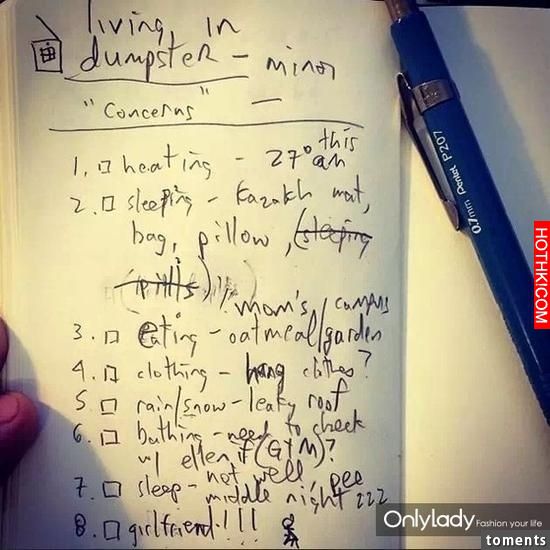 living in
dumpster - minor
"concerns" -
1. heating - 27° this
am
2. sleeping - Kazakh mat,
bag, pillow, (sleeping
pills)
mom's/campus
3. eating - oatmeal/garden
4. clothing - hang clothes?
5. rain/snow - leaky roof
6. bathing - need to check
w/ ellen if (GYM)?
7. sleep - not well, pee
middle night zzz
8. girlfriend!!!
0.7mm Pentel P207
HOTHKICOM
Onlylady Fashion your life
toments